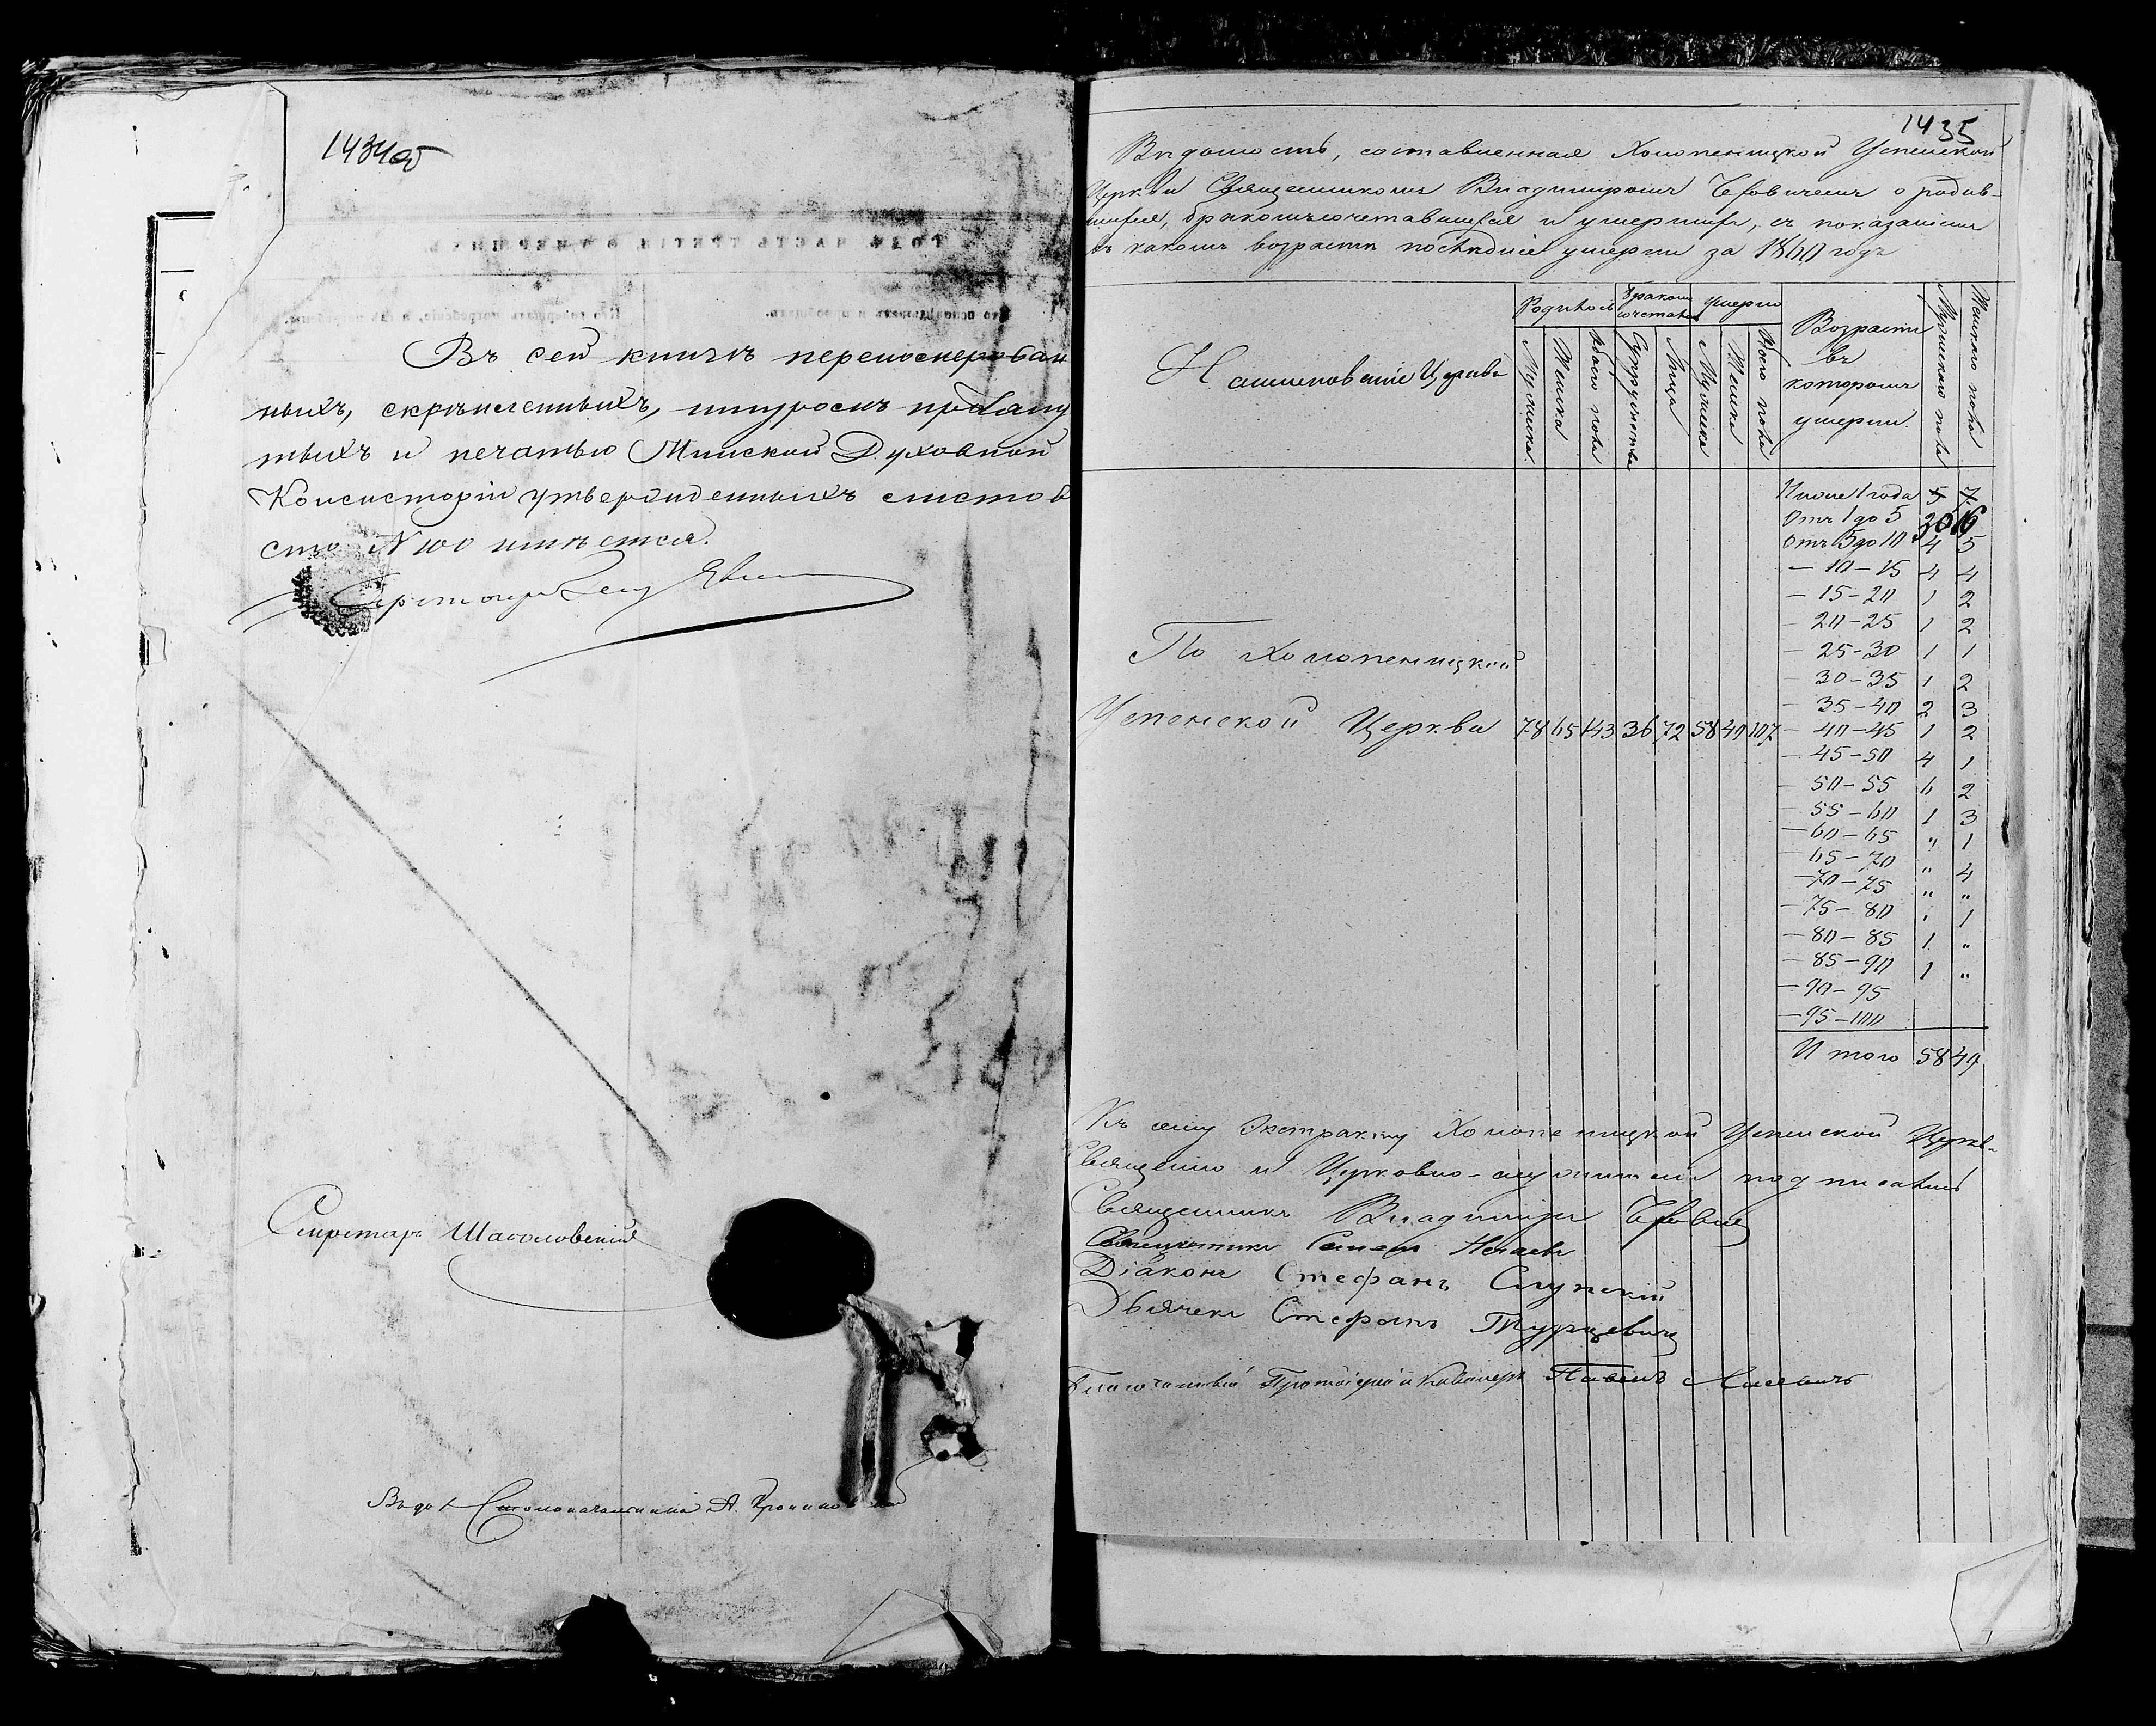 1434об
Въ сей книгѣ перенумерован
ныхъ, скрѣпленныхъ, шнуромъ прошну
тыхъ и печатью Минской Духовной
Консисторіи утвержденныхъ листов
сто N 100 имѣется.
Секретарь Шаболовскій
Столоначальника А.
1435
Вѣдомость, составленная Холопеницкой Успенской
Церкви Священникомъ Владиміромъ о родив-
шихся, бракомъ сочетавшихся и умершихъ, съ показаніемъ
въ какомъ возрастѣ послѣдніе умерли за 1860 годъ
Наименованіе Церкви
Родилось
Бракомъ сочетались
Умерло
Возрастъ въ которомъ умерли
Мужеского пола
Женского пола
Мужеска
Женска
Обоего пола
Супружества
Лица
Мужеска
Женска
Обоего пола
По Холопеницкой
Успенской Церкви 78 65 143 36 72 58 49 107
Ниже 1 года 5 7
Отъ 1 до 5 30 16
Отъ 5 до 10 4 5
— 10 — 15 4 4
— 15 — 20 1 2
— 20 — 25 1 2
— 25 — 30 1 1
— 30 — 35 1 2
— 35 — 40 2 3
— 40 — 45 1 2
— 45 — 50 4 1
— 50 — 55 6 2
— 55 — 60 1 3
— 60 — 65 " 1
— 65 — 70 " 4
— 70 — 75 " "
— 75 — 80 " 1
— 80 — 85 1 "
— 85 — 90 1 "
— 90 — 95
— 95 — 100
Итого 58 49
Къ сему Экстракту Холопеницкой Успенской Церкв-
Священно и Церковно-служители подписались
Священникъ Владиміръ
Священникъ
Діаконъ Стефанъ Слупскій
Дьячекъ Стефанъ Турцевичъ
Благочинный Протоіерей и Кавалеръ Павелъ